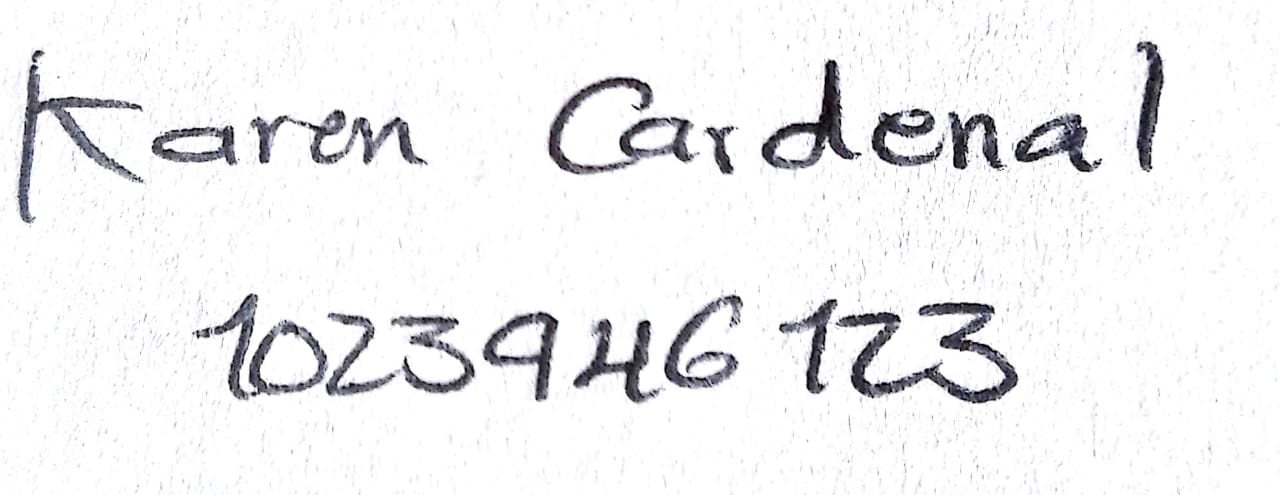 Karen Cardenal
1023946123